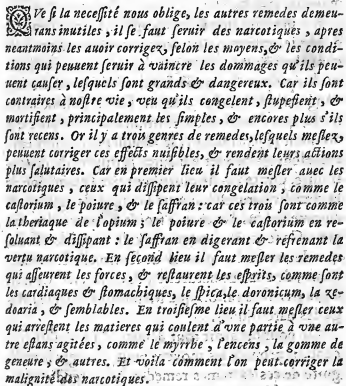 QVe si la necessité nous oblige, les autres remedes demeu-
rans inutiles, il se faut seruir des narcotiques, apres
neantmoins les auoir corrigez, selon les moyens, & les condi-
tions qui peuuent seruir à vaincre les dommages qu'ils peu-
uent causer, lesquels sont grands & dangereux. Car ils sont
contraires à nostre vie, veu qu'ils congelent, stupefient, &
mortifient, principalement les simples, & encores plus s'ils
sont recens. Or il y a trois genres de remedes, lesquels meslez,
peuuent corriger ces effects nuisibles, & rendent leurs actions
plus salutaires. Car en premier lieu il faut mesler auec les
narcotiques, ceux qui dissipent leur congelation; comme le
castorium, le poiure, & le saffran: car ces trois sont comme
la theriaque de l'opium; le poiure & le castorium en re-
soluant & dissipant: le saffran en digerant & refrenant la
vertu narcotique. En second lieu il faut mesler les remedes
qui asseurent les forces, & restaurent les esprits, comme sont
les cardiaques & stomachiques, le spica, le doronicum, la ze-
doaria, & semblables. En troisiesme lieu il faut mesler ceux
qui arrestent les matieres qui coulent d'vne partie à vne au-
tre estans agitées, comme le myrrhe, l'encens, la gomme de
geneure, & autres. Et voila comment l'on peut corriger la
malignité des narcotiques.